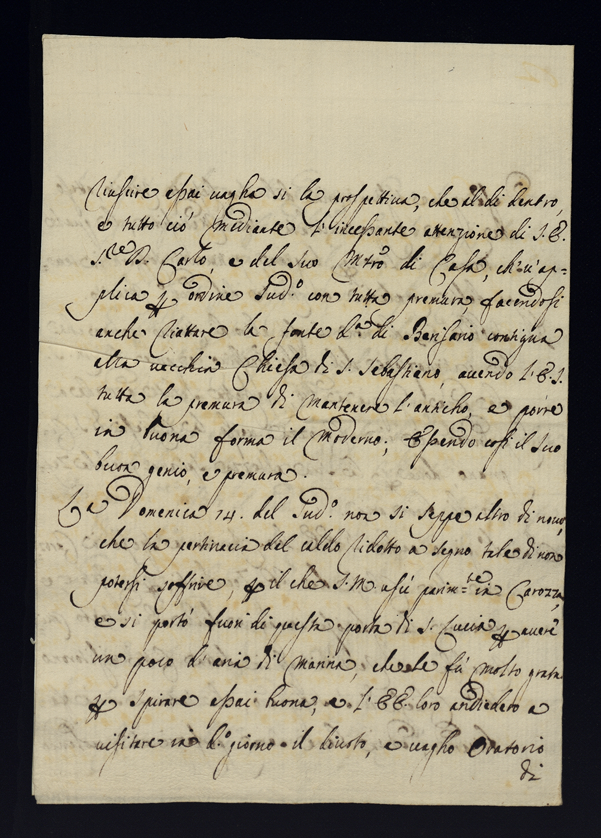 riuscire assai vagha si la prospettiva, che al di dentro,
e tutto ciò mediante l'incessante attenzione di S. E.
D. Carlo, e del suo Mtrõ di Casa, ch'v'ap=
plica ordine sud.º con tutta premura, facendosi
anche riattare la fonte d.ª di Berisario contigua
alla vecchia Chiesa di S. Sebastiano, avendo l'E. S.
tutta la premura di mantenere l'anticho, e porre
in buona forma il moderno; Essendo così il suo
buon genio, e premura.
La Domenica 14. del sud.º non si seppe altro di novo,
che la pertinacia del caldo ridotto a segno tale di non
potersi soffrire, il che S. M. uscì parim.te in Carozza,
e si portò fuori di questa porta di S. Lucia avere
un poco d'aria di marina, che le fù molto grata
spirare assai buona, e l'EE loro andiedero a
visitare in d.º giorno il divoto, e vagho Oratorio
di